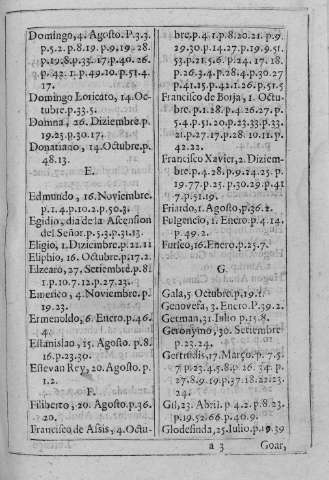 Domingo, 4. Agosto. P.3.3.
p.5.2. p.8.19. p.9.19. 28.
p.19.8. p.33. 17. p.40. 26.
p. 42. 1. p.49.10. p.51.4.
17.
Domingo Loricato, 14.Oc-
tubre. p.33.5.
Domna, 26. Diziembre. p.
19.23. p.30. 17.
Donatiano, 14. Octubre. p.
48.13.
E.
Edmundo, 16. Noviembre.
p. 1. 4. p.10.2. p.50.3.
Egidio, dia de la Ascension
del Señor. p.5.3. p.31.13.
Eligio, 1. Diziembre. p.22.11
Eliphio, 16. Octubre. p.17.2.
Elzearo, 27. Setiembre. p.8.
1. p.10.7. 12. p.27.23.
Emerico, 4. Noviembre. p.
19.23.
Ermenoldo, 6. Enero. p.46.
4.
Estanislao, 15. Agosto. p.8.
16. p.23.30.
Estevan Rey, 20. Agosto. p.
1.2.
F.
Filiberto, 20. Agosto. p.36.
20.
Francisco de Assis, 4. Octu-
bre. p. 4. 1. p. 8. 20. 21. p. 9.
29.30. p.14. 27. p.19.9.51.
53. p.21.5.6. p. 24. 17. 18.
p.26.3.4. p.28.4. p.30.27
p.41.15. p.42.1. p.26. 51.5
Francisco de Borja, 1. Octu-
bre. p.1.28. p.4.26.27. p.
5.4. p.51. 20. p.23.33. p.33.
21. p.27.17. p.28. 19.11. p.
42.22.
Francisco Xavier, 2. Diziem-
bre. p.4.28. p.9.24.25. p.
19.77. p.25. p.30.29. p.41
7. p.51.19.
Friardo, 1. Agosto, p.36.2.
Fulgencio, 1. Enero. p.4.14.
p. 49. 2.
Furseo, 16. Enero. p.25.7.
G.
Gala, 5. Octubre. p.19.1.
Genovefa, 3. Enero. P.39.2.
German, 31. Julio. p.15.8.
Geronymo, 30. Setiembre
p. 23.24.
Gertrudis, 17. Março. p. 7.5.
7. p.23.4.5.8. p.26. 34. p.
27.8.9. 19. p.37.18.22.23.
24.
Gil, 23. Abril. p.4.2. p.8.23.
p.19.52. 66. p.40.9.
Glodesinda, 25. Julio. p.19.39
a 3 Goar,